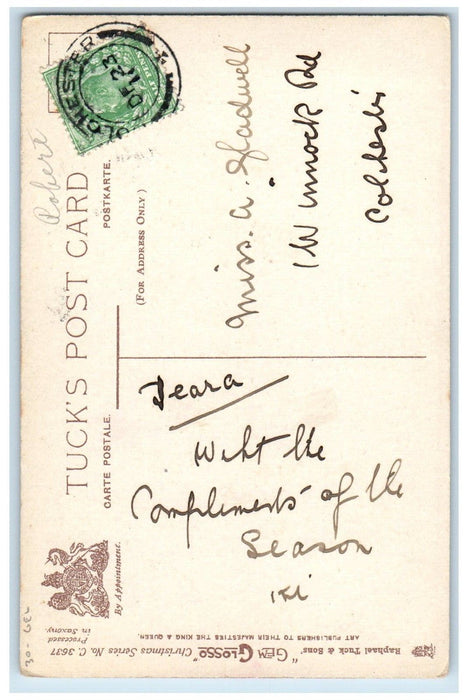 TUCK'S POST CARD
CARTE POSTALE. POSTKARTE.
(For Address Only)
By Appointment.
Robert
COLCHESTER
DE 23
Miss. A. Gladwell
1 Winnock Rd
Colchester
Deara
Wiht the
Compliments of the
Season
Raphael Tuck & Sons' "Gem Glosso" Christmas Series No. C. 3637
ART PUBLISHERS TO THEIR MAJESTIES THE KING & QUEEN.
Processed
in Saxony.